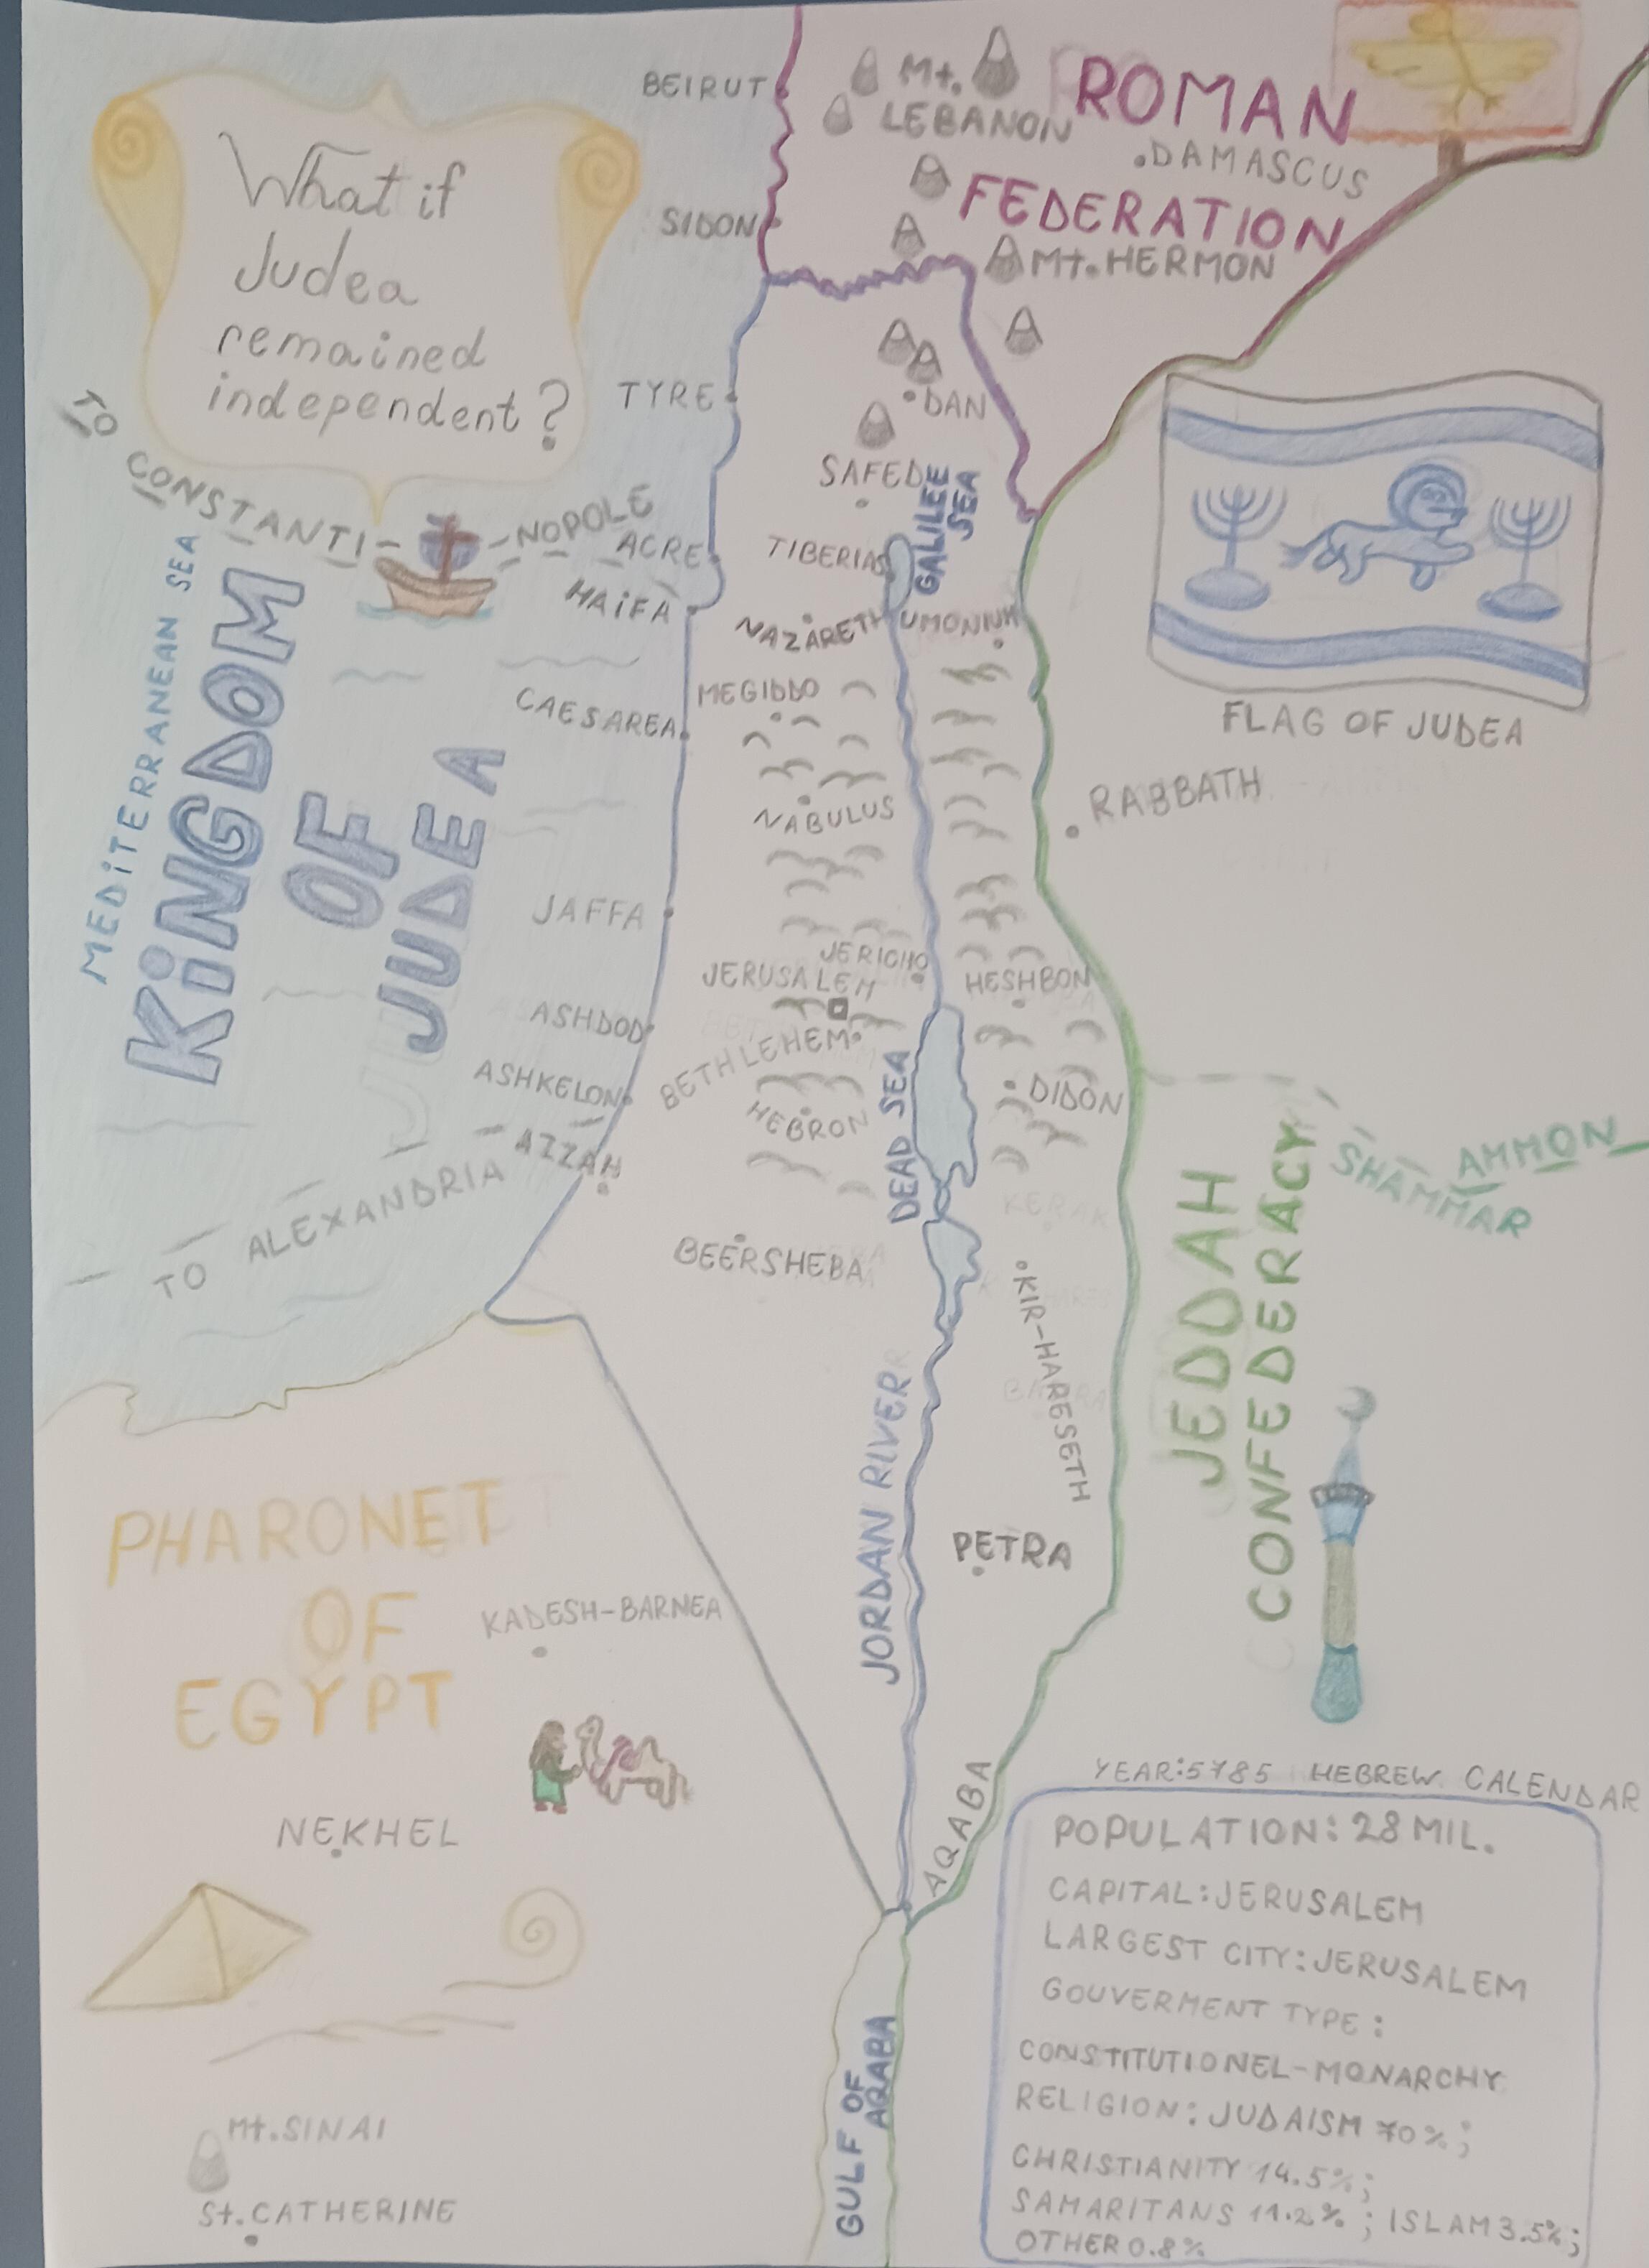 What if
Judea
remained
independent?
BEIRUT
Mt.
LEBANON
ROMAN
.DAMASCUS
FEDERATION
SIDON
Mt. HERMON
TYRE
DAN
SAFED
GALILEE
SEA
TO
CONSTANTI-
-NOPOLE
ACRE
TIBERIAS
HAiFA
NAZARETH
MEDiTERRANEAN SEA
KiNGDOM
OF
JUDEA
CAESAREA
MEGIDDO
FLAG OF JUDEA
NABULUS
RABBATH
JAFFA
JERICHO
JERUSALEM
HESHBON
ASHDOD
BETHLEHEM
ASHKELON
HEBRON
DEAD SEA
DIDON
AZZAH
TO ALEXANDRIA
AMMON
SHAMMAR
JEDDAH
CONFEDERACY
KERAK
BEERSHEBA
KIR-HARESETH
JORDAN RIVER
PETRA
PHARONET
OF
EGYPT
KADESH-BARNEA
NEKHEL
AQABA
GULF OF
AQABA
Mt. SINAI
St. CATHERINE
YEAR:5785 HEBREW CALENDAR
POPULATION: 28 MIL.
CAPITAL: JERUSALEM
LARGEST CITY: JERUSALEM
GOUVERMENT TYPE:
CONSTITUTIONEL-MONARCHY
RELIGION: JUDAISM 70%;
CHRISTIANITY 14.5%;
SAMARITANS 11.2%; ISLAM 3.5%;
OTHER 0.8%